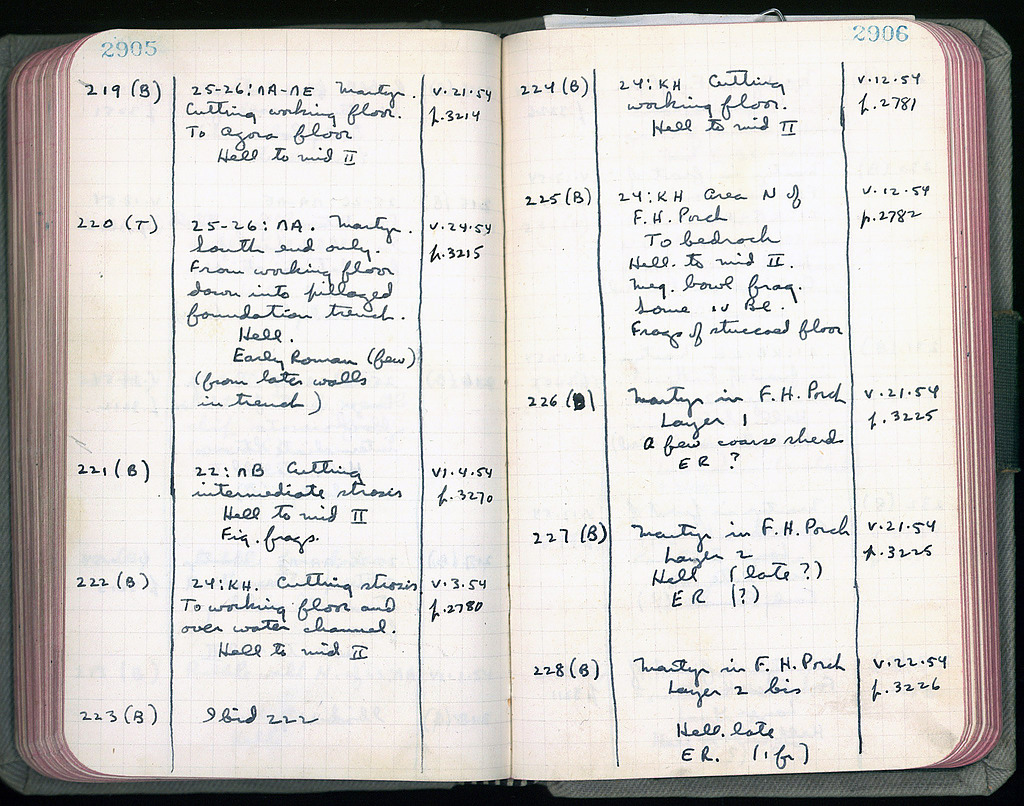 2905
219 (B) 25-26:ΠΑ-ΠΕ Martyr. V.21.54
Cutting working floor. p.3214
To agora floor
Hell to mid II
220 (T) 25-26:ΠΑ. Martyr. V.24.54
South end only. p.3215
From working floor
down into pillaged
foundation trench.
Hell.
Early Roman (few)
(from later walls
in trench)
221 (B) 22:ΠΒ Cutting VI.4.54
intermediate strosis p.3270
Hell to mid II
Fig. frags.
222 (B) 24:ΚΗ. Cutting strosis V.3.54
To working floor and p.2780
over water channel.
Hell to mid II
223 (B) Ibid 222
2906
224 (B) 24:ΚΗ Cutting V.12.54
working floor. p.2781
Hell to mid II
225 (B) 24:ΚΗ Area N of V.12.54
F.H. Porch p.2782
To bedrock
Hell. to mid II.
Meg. bowl frag.
Some IV Bl.
Frags of stuccoed floor
226 (B) Martyr in F.H. Porch V.21.54
Layer 1 p.3225
A few coarse sherds
ER ?
227 (B) Martyr in F.H. Porch V.21.54
Layer 2 p.3225
Hell (late?)
ER (?)
228 (B) Martyr in F.H. Porch V.22.54
Layer 2 bis p.3226
Hell. late
ER. (1 fr)